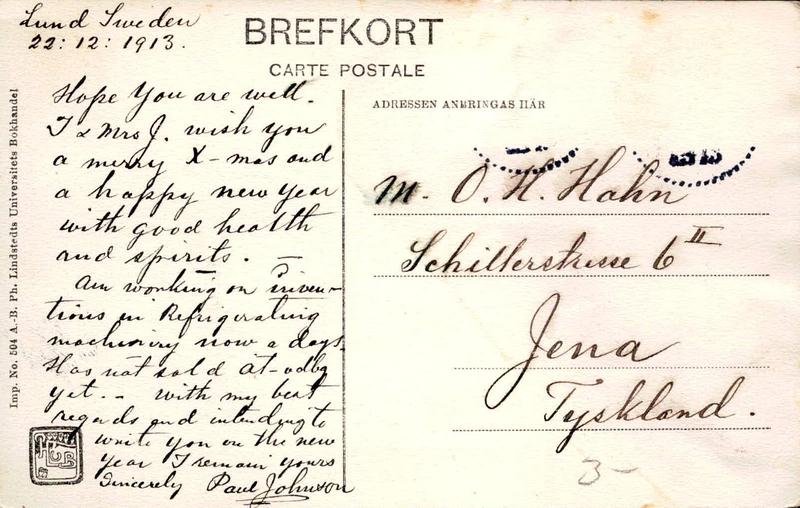 Lund Sweden
22:12:1913.
BREFKORT
CARTE POSTALE
ADRESSEN ANBRINGAS HÄR
Hope you are well.
I & Mrs J. wish you
a merry X-mas and
a happy new year
with good health
and spirits. —
Am working on inven-
tions in Refrigerating
machinery now a days.
Has not sold
yet. - with my best
regards and intending to
write you on the new
year I remain yours
Sincerely Paul Johnson
M. O. H. Hahn
Schillerstrasse 6 II
Jena
Tyskland.
3-
Imp. No. 504 A.-B. Ph. Lindstedts Universitets Bokhandel